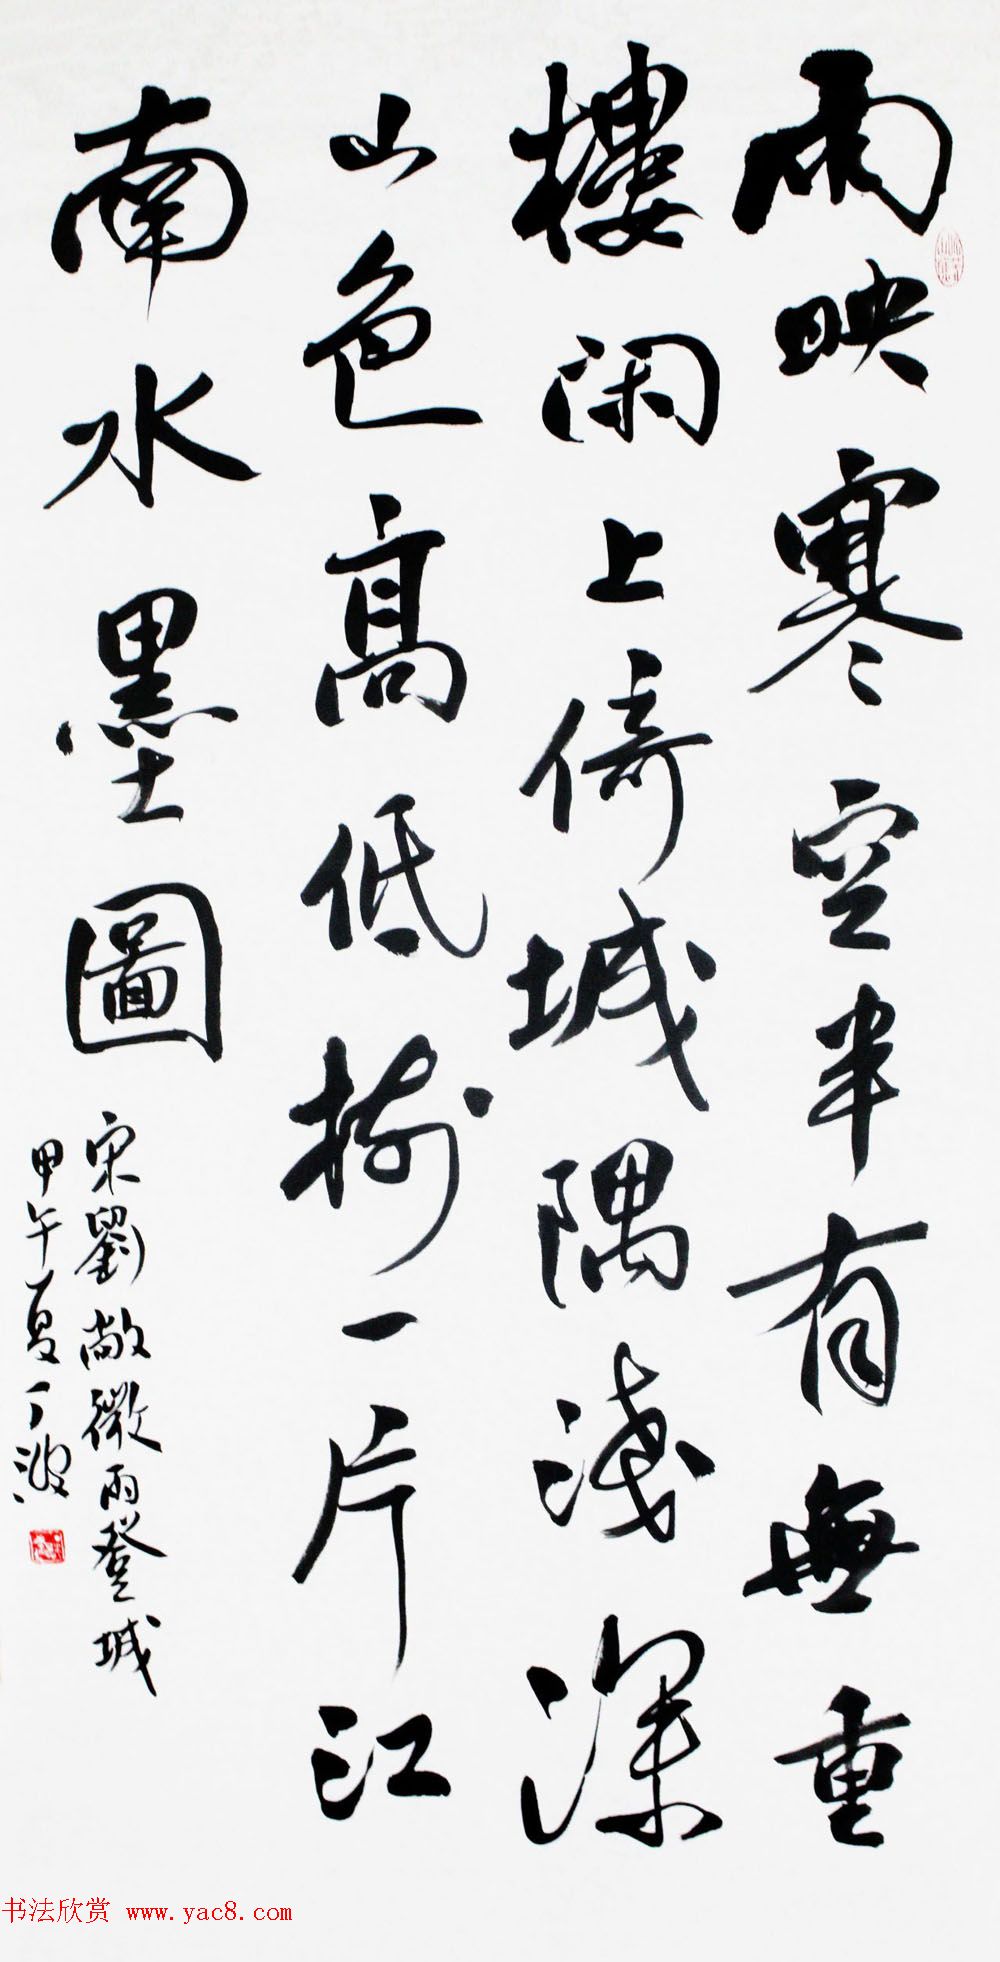 雨映寒空半有無重
樓闲上倚城隅淺深
山色高低樹一片江
南水墨圖
宋劉敞微雨登城
甲午夏丁波
书法欣赏 www.yac8.com